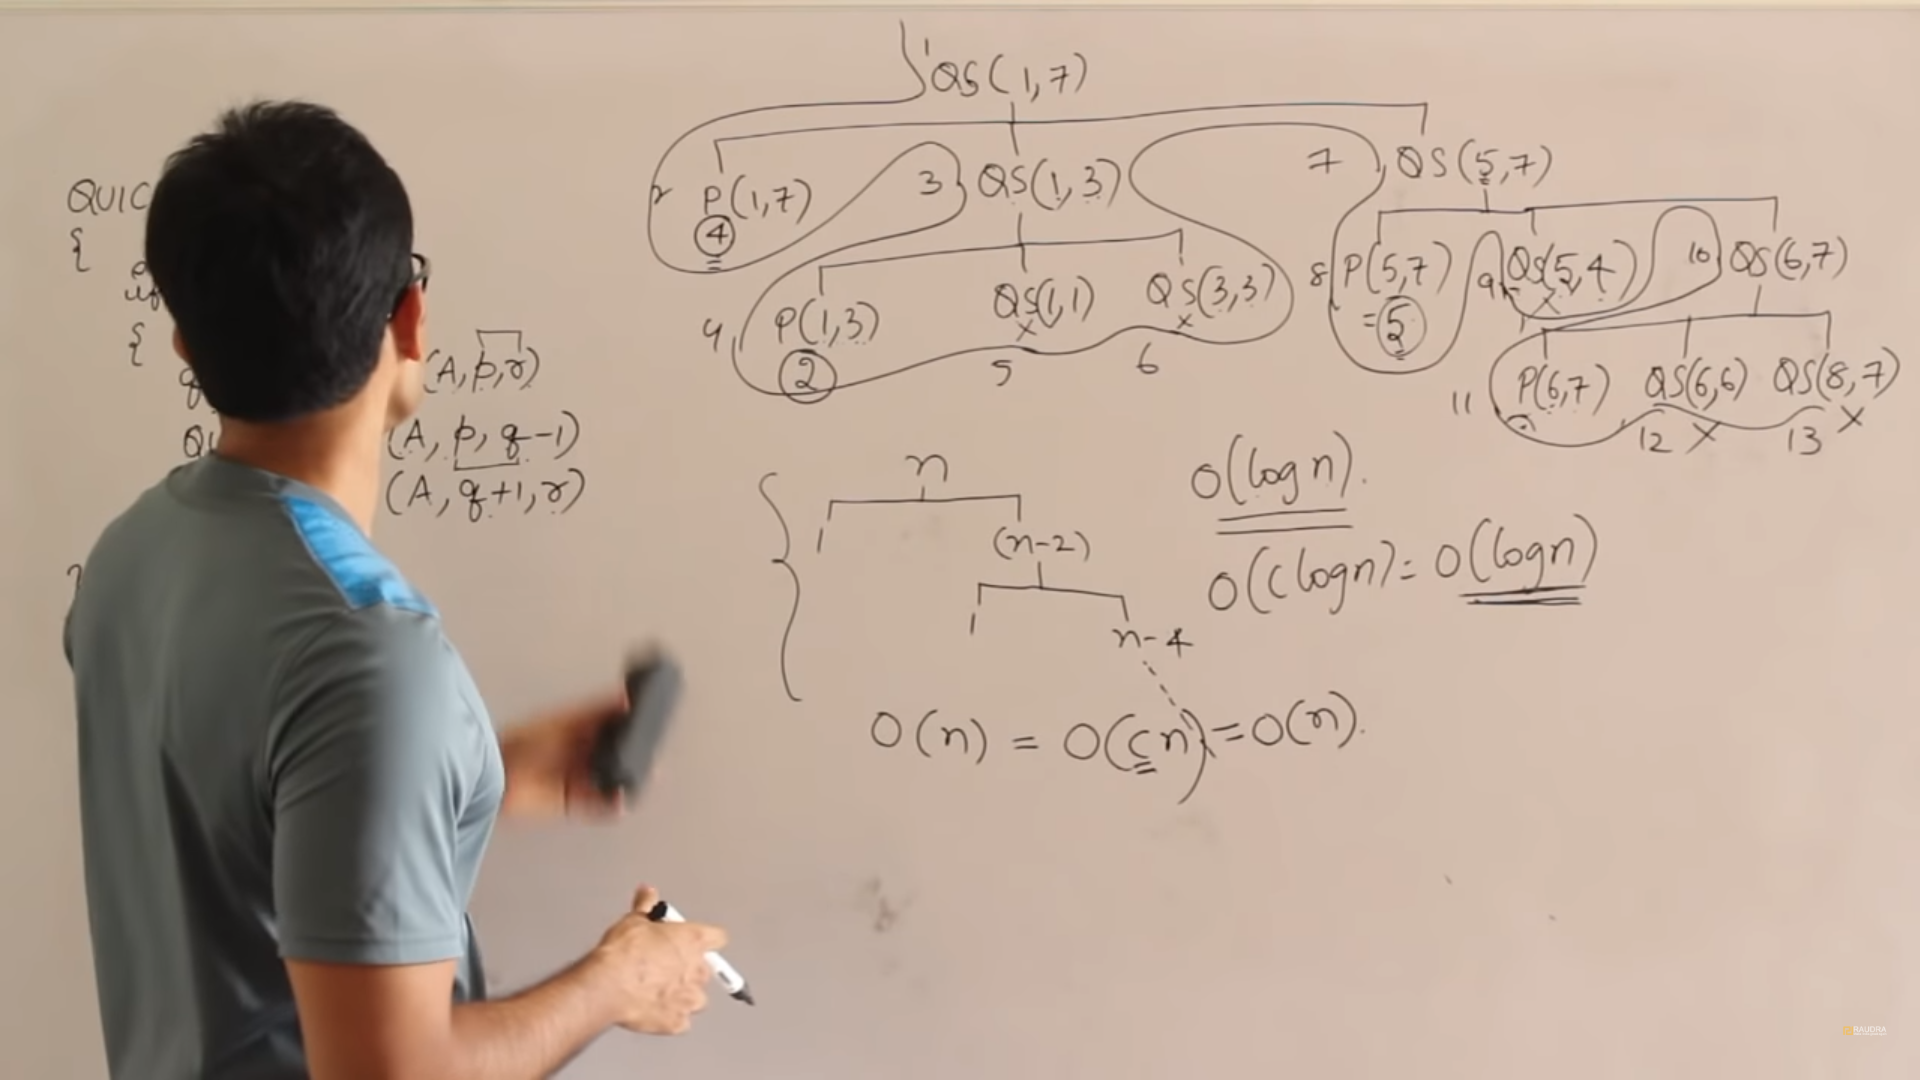 QUIC
{
{
(A, p, r)
QU
(A, p, q-1)
(A, q+1, r)
1 QS(1,7)
2 P(1,7)
4
3 QS(1,3)
7 QS(5,7)
4 P(1,3)
2
QS(1,1)
×
5
QS(3,3)
×
6
8 P(5,7)
=5
9 QS(5,4)
×
10 QS(6,7)
11 P(6,7)
QS(6,6)
12 ×
QS(8,7)
13 ×
n
1 (n-2)
1 n-4
O(n) = O(cn) = O(n).
O(log n).
O(c log n) = O(log n)
RAUDRA